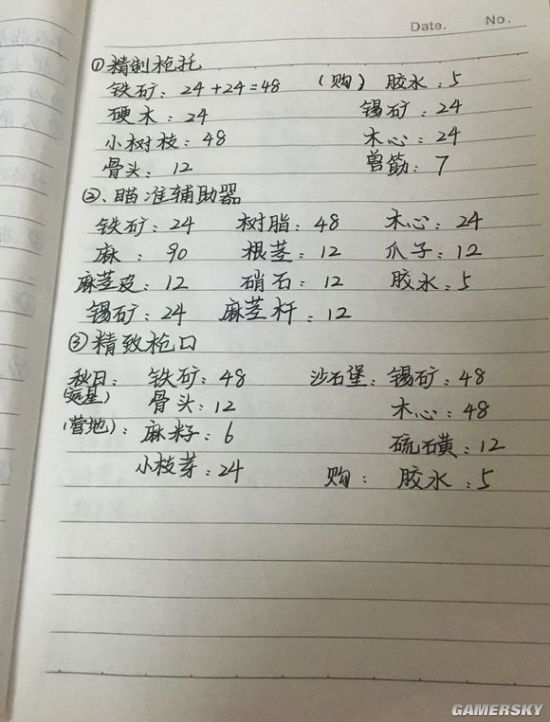 Date. No.
①精制枪托
铁矿：24+24=48 （购）胶水：5
硬木：24 锡矿：24
小树枝：48 木心：24
骨头：12 兽筋：7
②、瞄准辅助器
铁矿：24 树脂：48 木心：24
麻：90 根茎：12 爪子：12
麻茎皮：12 硝石：12 胶水：5
锡矿：24 麻茎杆：12
③精致枪口
秋日： 铁矿：48 沙石堡：锡矿：48
骨头：12 木心：48
（营地）：麻籽：6 硫磺：12
小枝芽：24 购：胶水：5
GAMERSKY